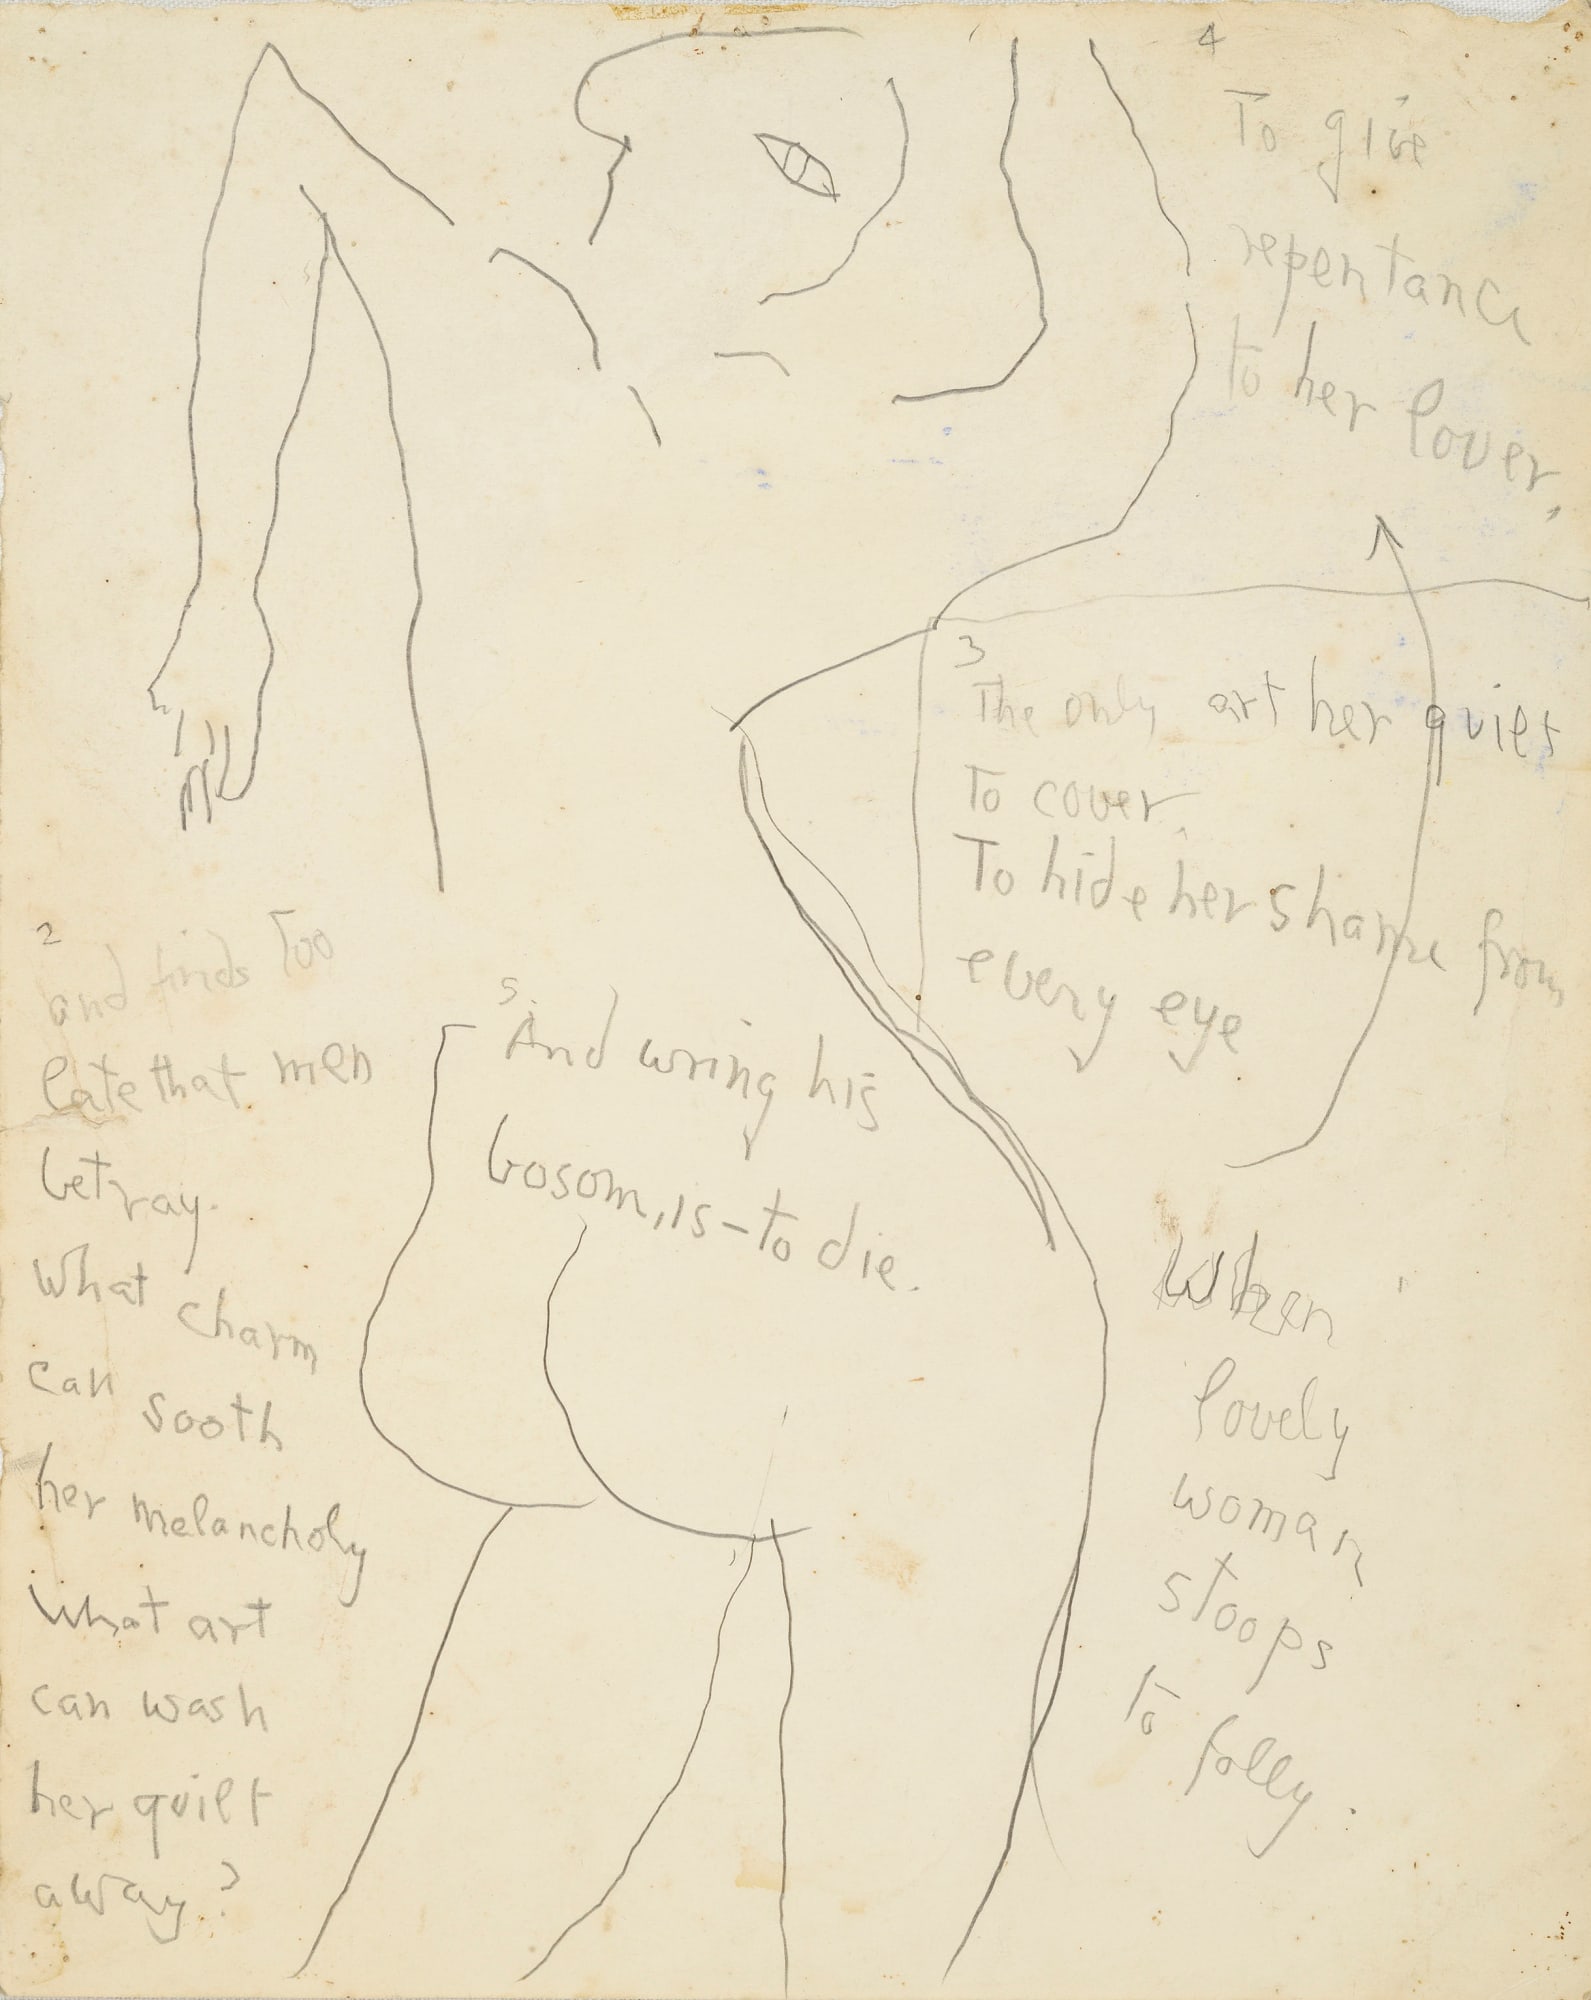 When
lovely
woman
stoops
to folly.
2
and finds too
late that men
betray.
What charm
can sooth
her melancholy
What art
can wash
her guilt
away?
3
The only art her guilt
To cover.
To hide her shame from
every eye
4
To give
repentance
to her lover,
5.
And wring his
bosom, is - to die.